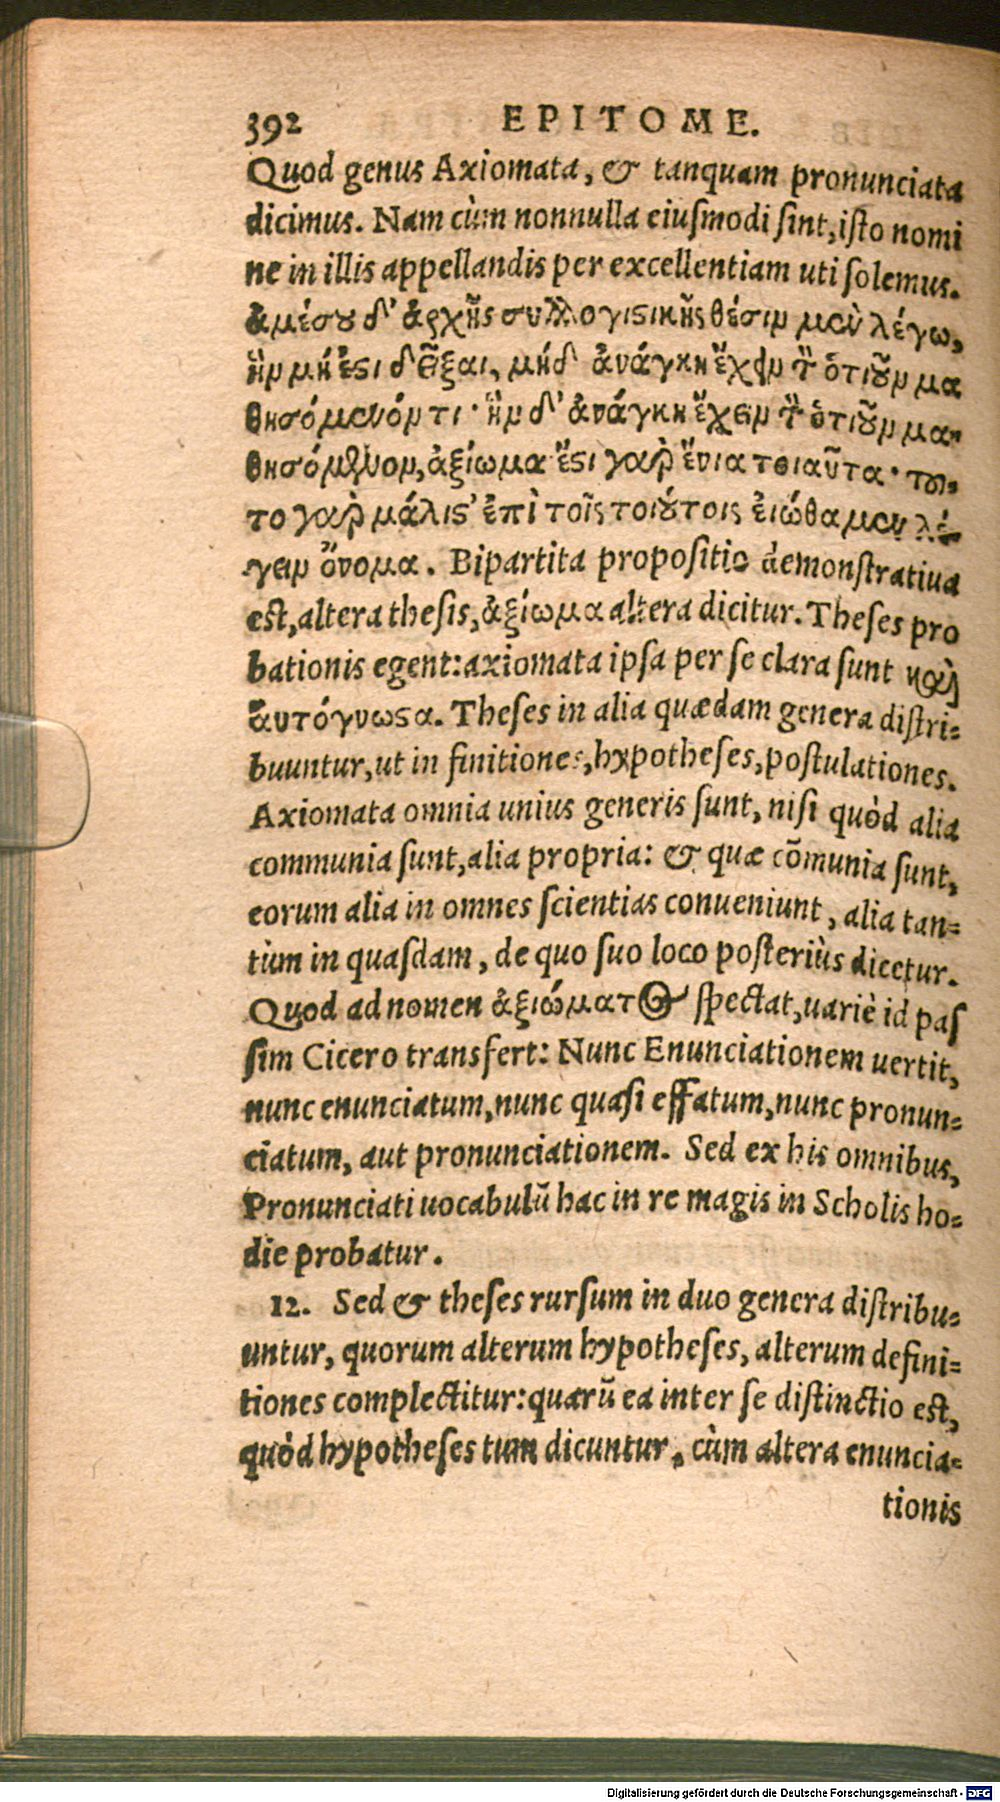 392 EPITOME.
Quod genus Axiomata, & tanquam pronunciata
dicimus. Nam cùm nonnulla eiuſmodi ſint, iſto nomi
ne in illis appellandis per excellentiam uti ſolemus.
ἀμέσου δ' ἀρχῆς συλλογιϛικῆς θέσιν μὲν λέγω,
ἣν μή ἐϛι δεῖξαι, μήδ' ἀνάγκη ἔχειν τ ὁτιοῦν μα
θησόμενόν τι· ἣν δ' ἀνάγκη ἔχειν τ ὁτιοῦν μα-
θησόμενον, ἀξίωμα· ἔϛι γαρ ἔνια τοιαῦτα· τοῦ-
το γαρ μάλιϛ' ἐπὶ τοῖς τοιούτοις ἐιώθαμεν λέ-
γειν ὄνομα. Bipartita propoſitio demonſtratiua
eſt, altera theſis, ἀξίωμα altera dicitur. Theſes pro
bationis egent: axiomata ipſa per ſe clara ſunt καὶ
αυτόγνωϛα. Theſes in alia quædam genera diſtri-
buuntur, ut in finitiones, hypotheſes, poſtulationes.
Axiomata omnia unius generis ſunt, niſi quòd alia
communia ſunt, alia propria: & quæ cōmunia ſunt,
eorum alia in omnes ſcientias conueniunt, alia tan-
tùm in quaſdam, de quo ſuo loco poſteriùs dicetur.
Quod ad nomen ἀξιώματος ſpectat, uariè id paſ
ſim Cicero transfert: Nunc Enunciationem uertit,
nunc enunciatum, nunc quaſi effatum, nunc pronun-
ciatum, aut pronunciationem. Sed ex his omnibus,
Pronunciati uocabulū hac in re magis in Scholis ho-
die probatur.
12. Sed & theſes rurſum in duo genera diſtribu-
untur, quorum alterum hypotheſes, alterum defini-
tiones complectitur: quarū ea inter ſe diſtinctio eſt,
quòd hypotheſes tum dicuntur, cùm altera enuncia-
tionis
Digitalisierung gefördert durch die Deutsche Forschungsgemeinschaft - DFG